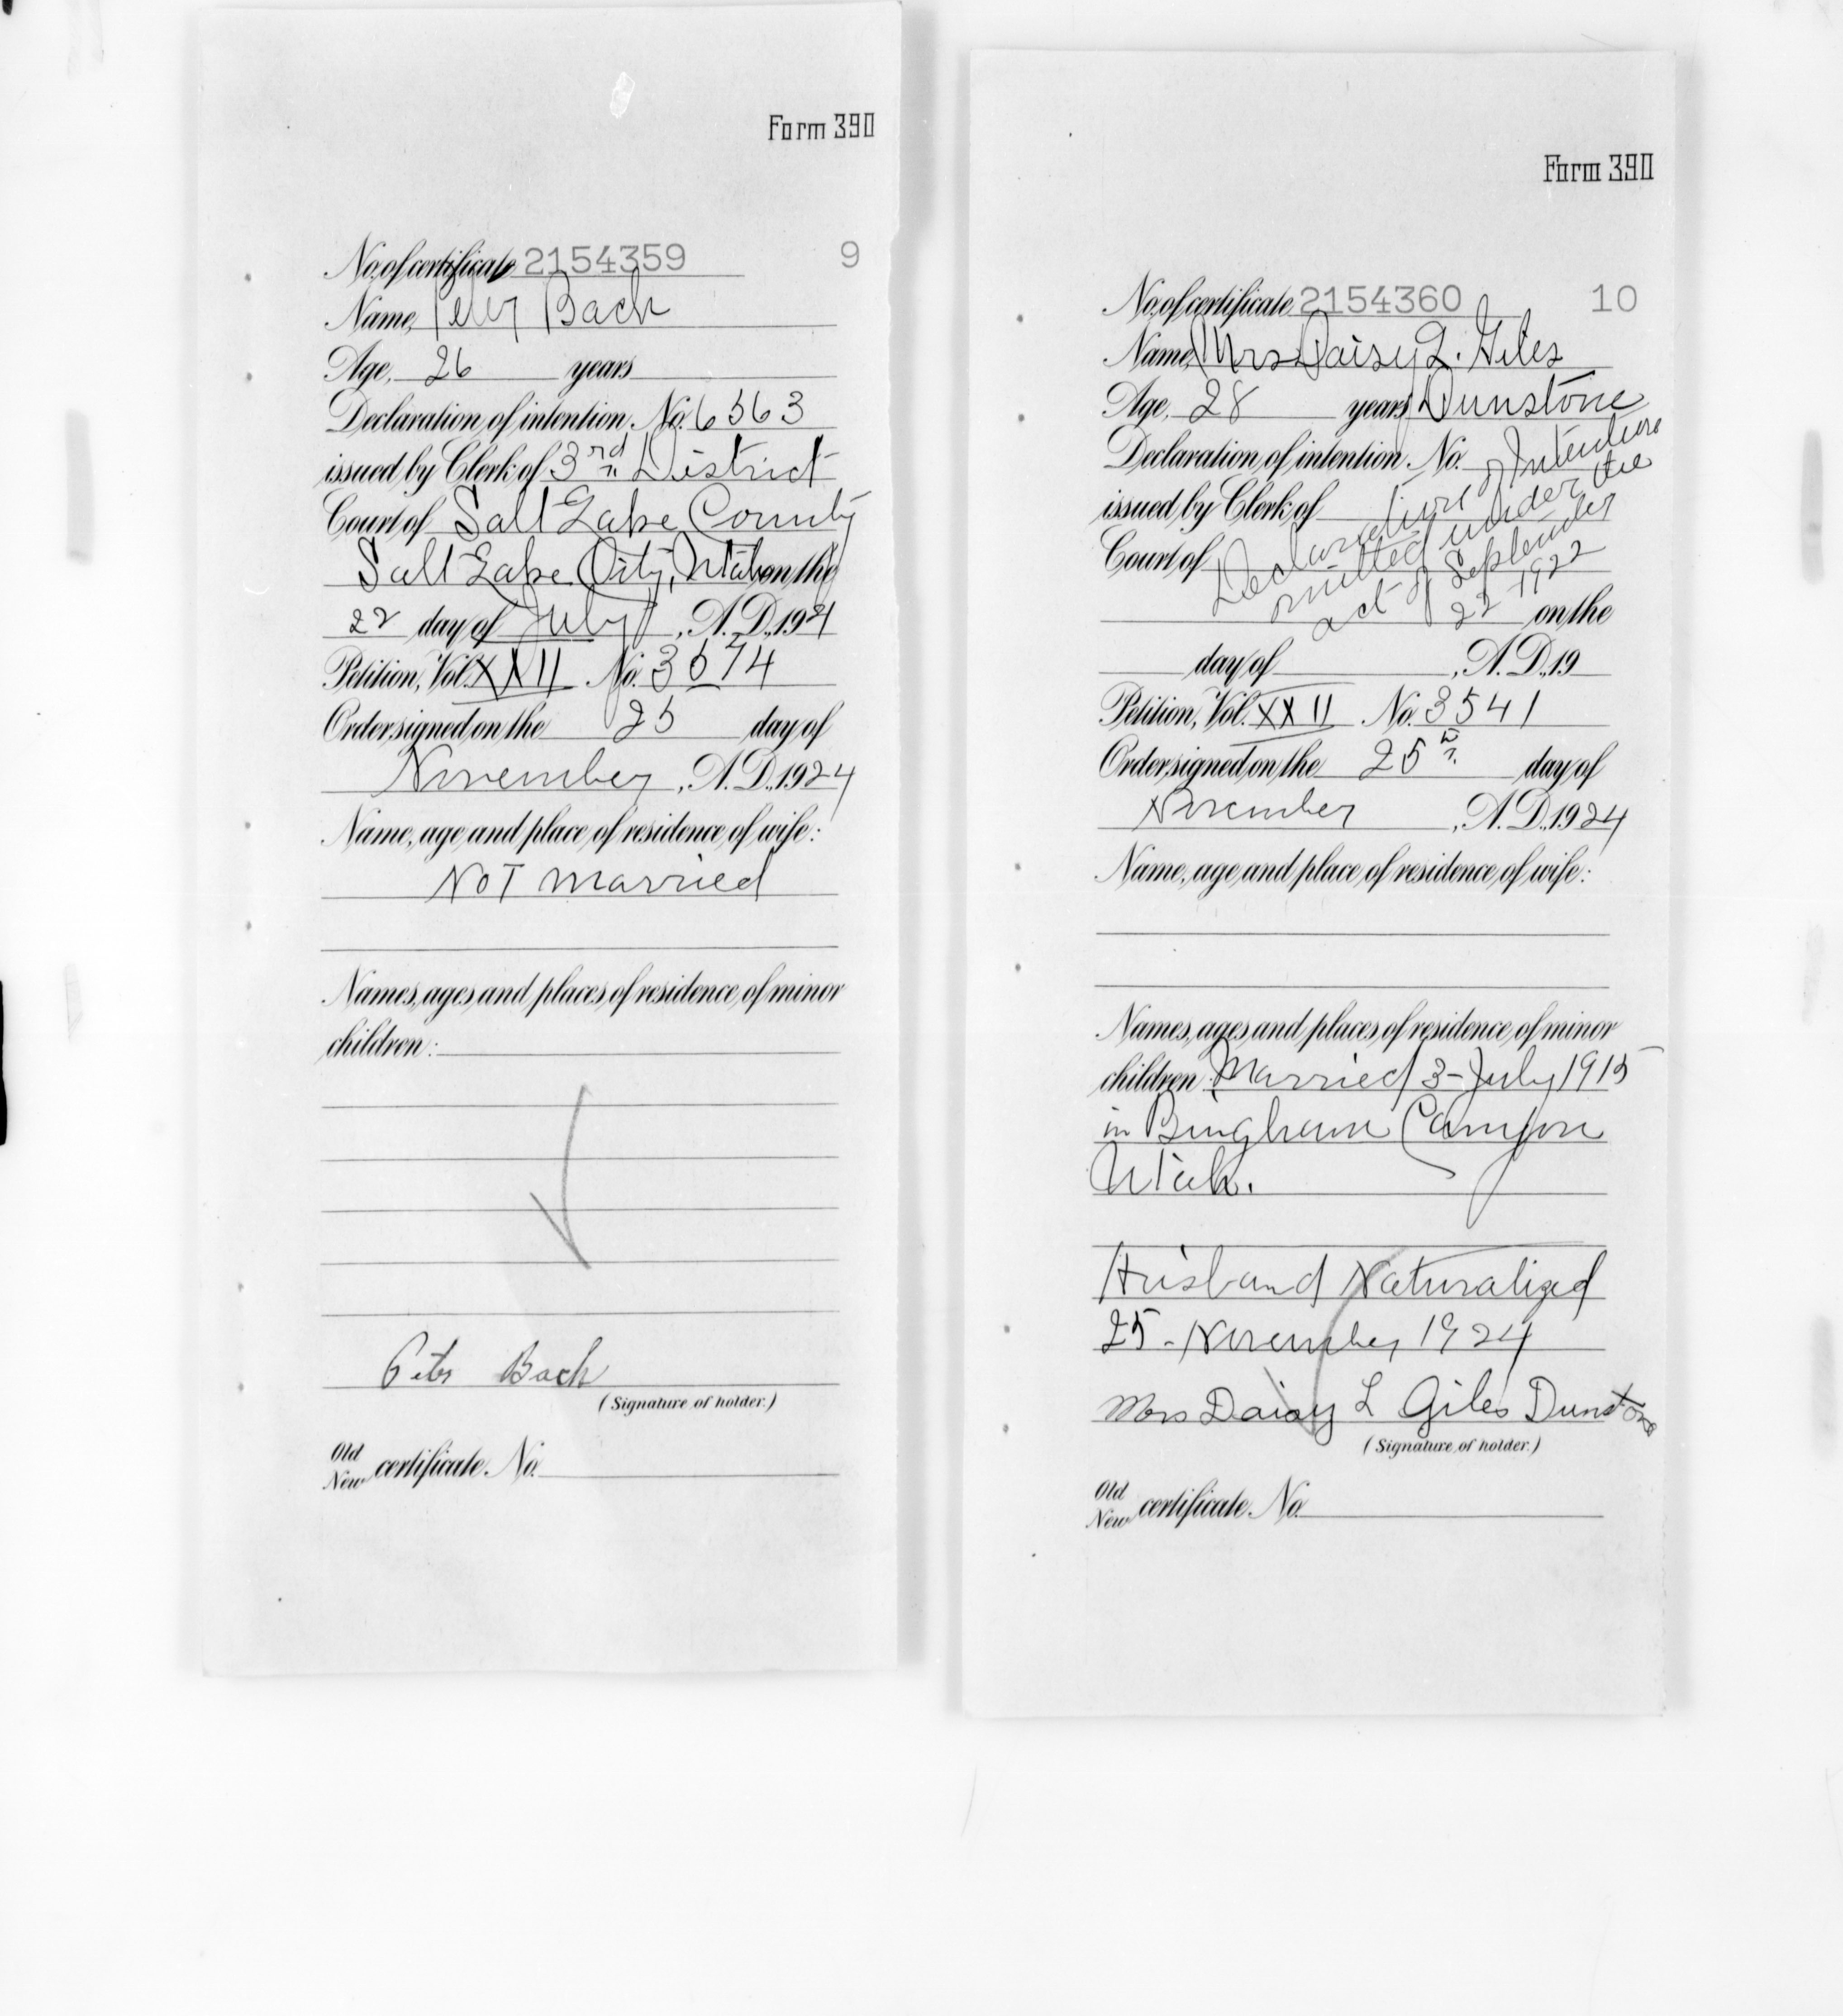 Form 390
No. of certificate 2154359 9
Name, Peter Bach
Age, 26 years
Declaration of intention, No. 6563
issued by Clerk of 3rd District
Court of Salt Lake County
Salt Lake City, Utah on the
22 day of July, A.D. 1921
Petition, Vol. XXII No. 3574
Order signed on the 25 day of
November, A.D. 1924
Name, age and place of residence of wife:
Not Married
Names, ages and places of residence of minor
children:
Peter Bach
(Signature of holder.)
Old
New certificate No.
Form 390
No. of certificate 2154360 10
Name, Mrs Daisy L. Giles
Age, 28 years Dunstone
Declaration of intention, No.
issued by Clerk of
Court of
Declaration of Intention
omitted under the
act of September
22 1922
on the
day of , A.D. 19
Petition, Vol. XXII No. 3541
Order signed on the 25th day of
November, A.D. 1924
Name, age and place of residence of wife:
Names, ages and places of residence of minor
children: Married 3-July 1915
in Bingham Canyon
Utah.
Husband Naturalized
25-November 1924
Mrs Daisy L Giles Dunstone
(Signature of holder.)
Old
New certificate No.